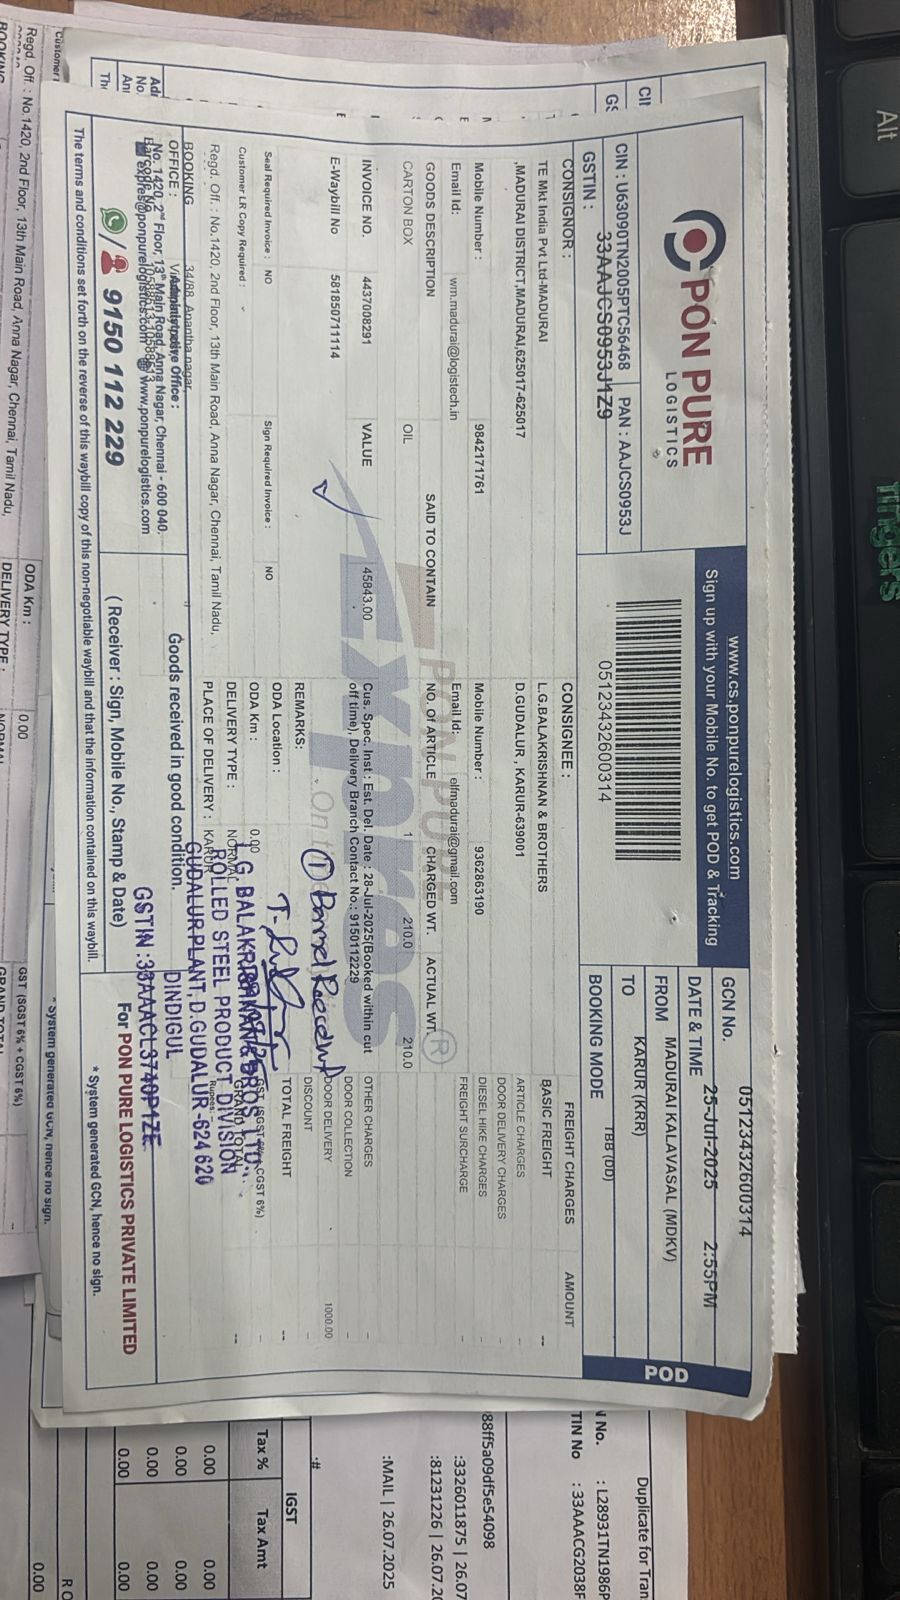 PON PURE
LOGISTICS
CIN : U63090TN2005PTC56468
PAN : AAJCS0953J
GSTIN :
33AAJCS0953J1Z9
www.cs.ponpurelogistics.com
Sign up with your Mobile No. to get POD & Tracking
0512343260​0314
GCN No.
0512343260​0314
DATE & TIME
25-Jul-2025
2:55PM
FROM
MADURAI KALAVASAL (MDKV)
TO
KARUR (KRR)
BOOKING MODE
TBB (DD)
POD
CONSIGNOR :
TE Mkt India Pvt Ltd-MADURAI
,MADURAI DISTRICT,MADURAI,625017-625017
Mobile Number :
9842171761
Email Id:
wm.madurai@logistech.in
CONSIGNEE :
L.G.BALAKRISHNAN & BROTHERS
D.GUDALUR , KARUR-639001
Mobile Number :
9362863190
Email Id:
olfmadurai@gmail.com
GOODS DESCRIPTION
SAID TO CONTAIN
NO. Of ARTICLE
CHARGED WT.
ACTUAL WT.
CARTON BOX
OIL
1
210.0
210.0
INVOICE NO.
4437008291
VALUE
45843.00
E-Waybill No
581850711114
Cus. Spec. Inst : Est. Del. Date : 28-Jul-2025(Booked within cut
off time), Delivery Branch Contact No.: 9150112229
REMARKS:
PON PURE
Express
R
Seal Required Invoice : NO
Sign Required Invoice : NO
Customer LR Copy Required :
ODA Location :
ODA Km :
0.00
DELIVERY TYPE :
NORMAL
PLACE OF DELIVERY :
KARUR
Regd. Off. : No.1420, 2nd Floor, 13th Main Road, Anna Nagar, Chennai, Tamil Nadu,
BOOKING
OFFICE :
34/88, Anantha nagar,
Administrative Office :
No. 1420, 2nd Floor, 13th Main Road, Anna Nagar, Chennai - 600 040.
Barcode No.
expres@ponpurelogistics.com
www.ponpurelogistics.com
9150 112 229
Goods received in good condition.
( Receiver : Sign, Mobile No., Stamp & Date)
L.G. BALAKRISHNAN & BROS LTD.,
ROLLED STEEL PRODUCT DIVISION
GUDALUR PLANT, D.GUDALUR -624 620
DINDIGUL
GSTIN :33AAACL3740P1ZE
FREIGHT CHARGES
AMOUNT
BASIC FREIGHT
--
ARTICLE CHARGES
DOOR DELIVERY CHARGES
DIESEL HIKE CHARGES
FREIGHT SURCHARGE
OTHER CHARGES
DOOR COLLECTION
DOOR DELIVERY
1000.00
DISCOUNT
TOTAL FREIGHT
--
GST (SGST 6% + CGST 6%)
GRAND TOTAL
--
Rupees:
For PON PURE LOGISTICS PRIVATE LIMITED
* System generated GCN, hence no sign.
The terms and conditions set forth on the reverse of this waybill copy of this non-negotiable waybill and that the information contained on this waybill.
Regd. Off. : No.1420, 2nd Floor, 13th Main Road, Anna Nagar, Chennai, Tamil Nadu,
ODA Km :
0.00
DELIVERY TYPE :
NORMAL
GST (SGST 6% + CGST 6%)
GRAND TOTAL
--
System generated GCN, hence no sign.
Duplicate for Tran
N No.
: L28931TN1986P
TIN No
: 33AAACG2038F
88ff5a09df5e54098
:3326011875 | 26.07
:81231226 | 26.07.20
:MAIL | 26.07.2025
:#
IGST
Tax %
Tax Amt
0.00
0.00
0.00
0.00
0.00
0.00
0.00
0.00
0.00
Alt